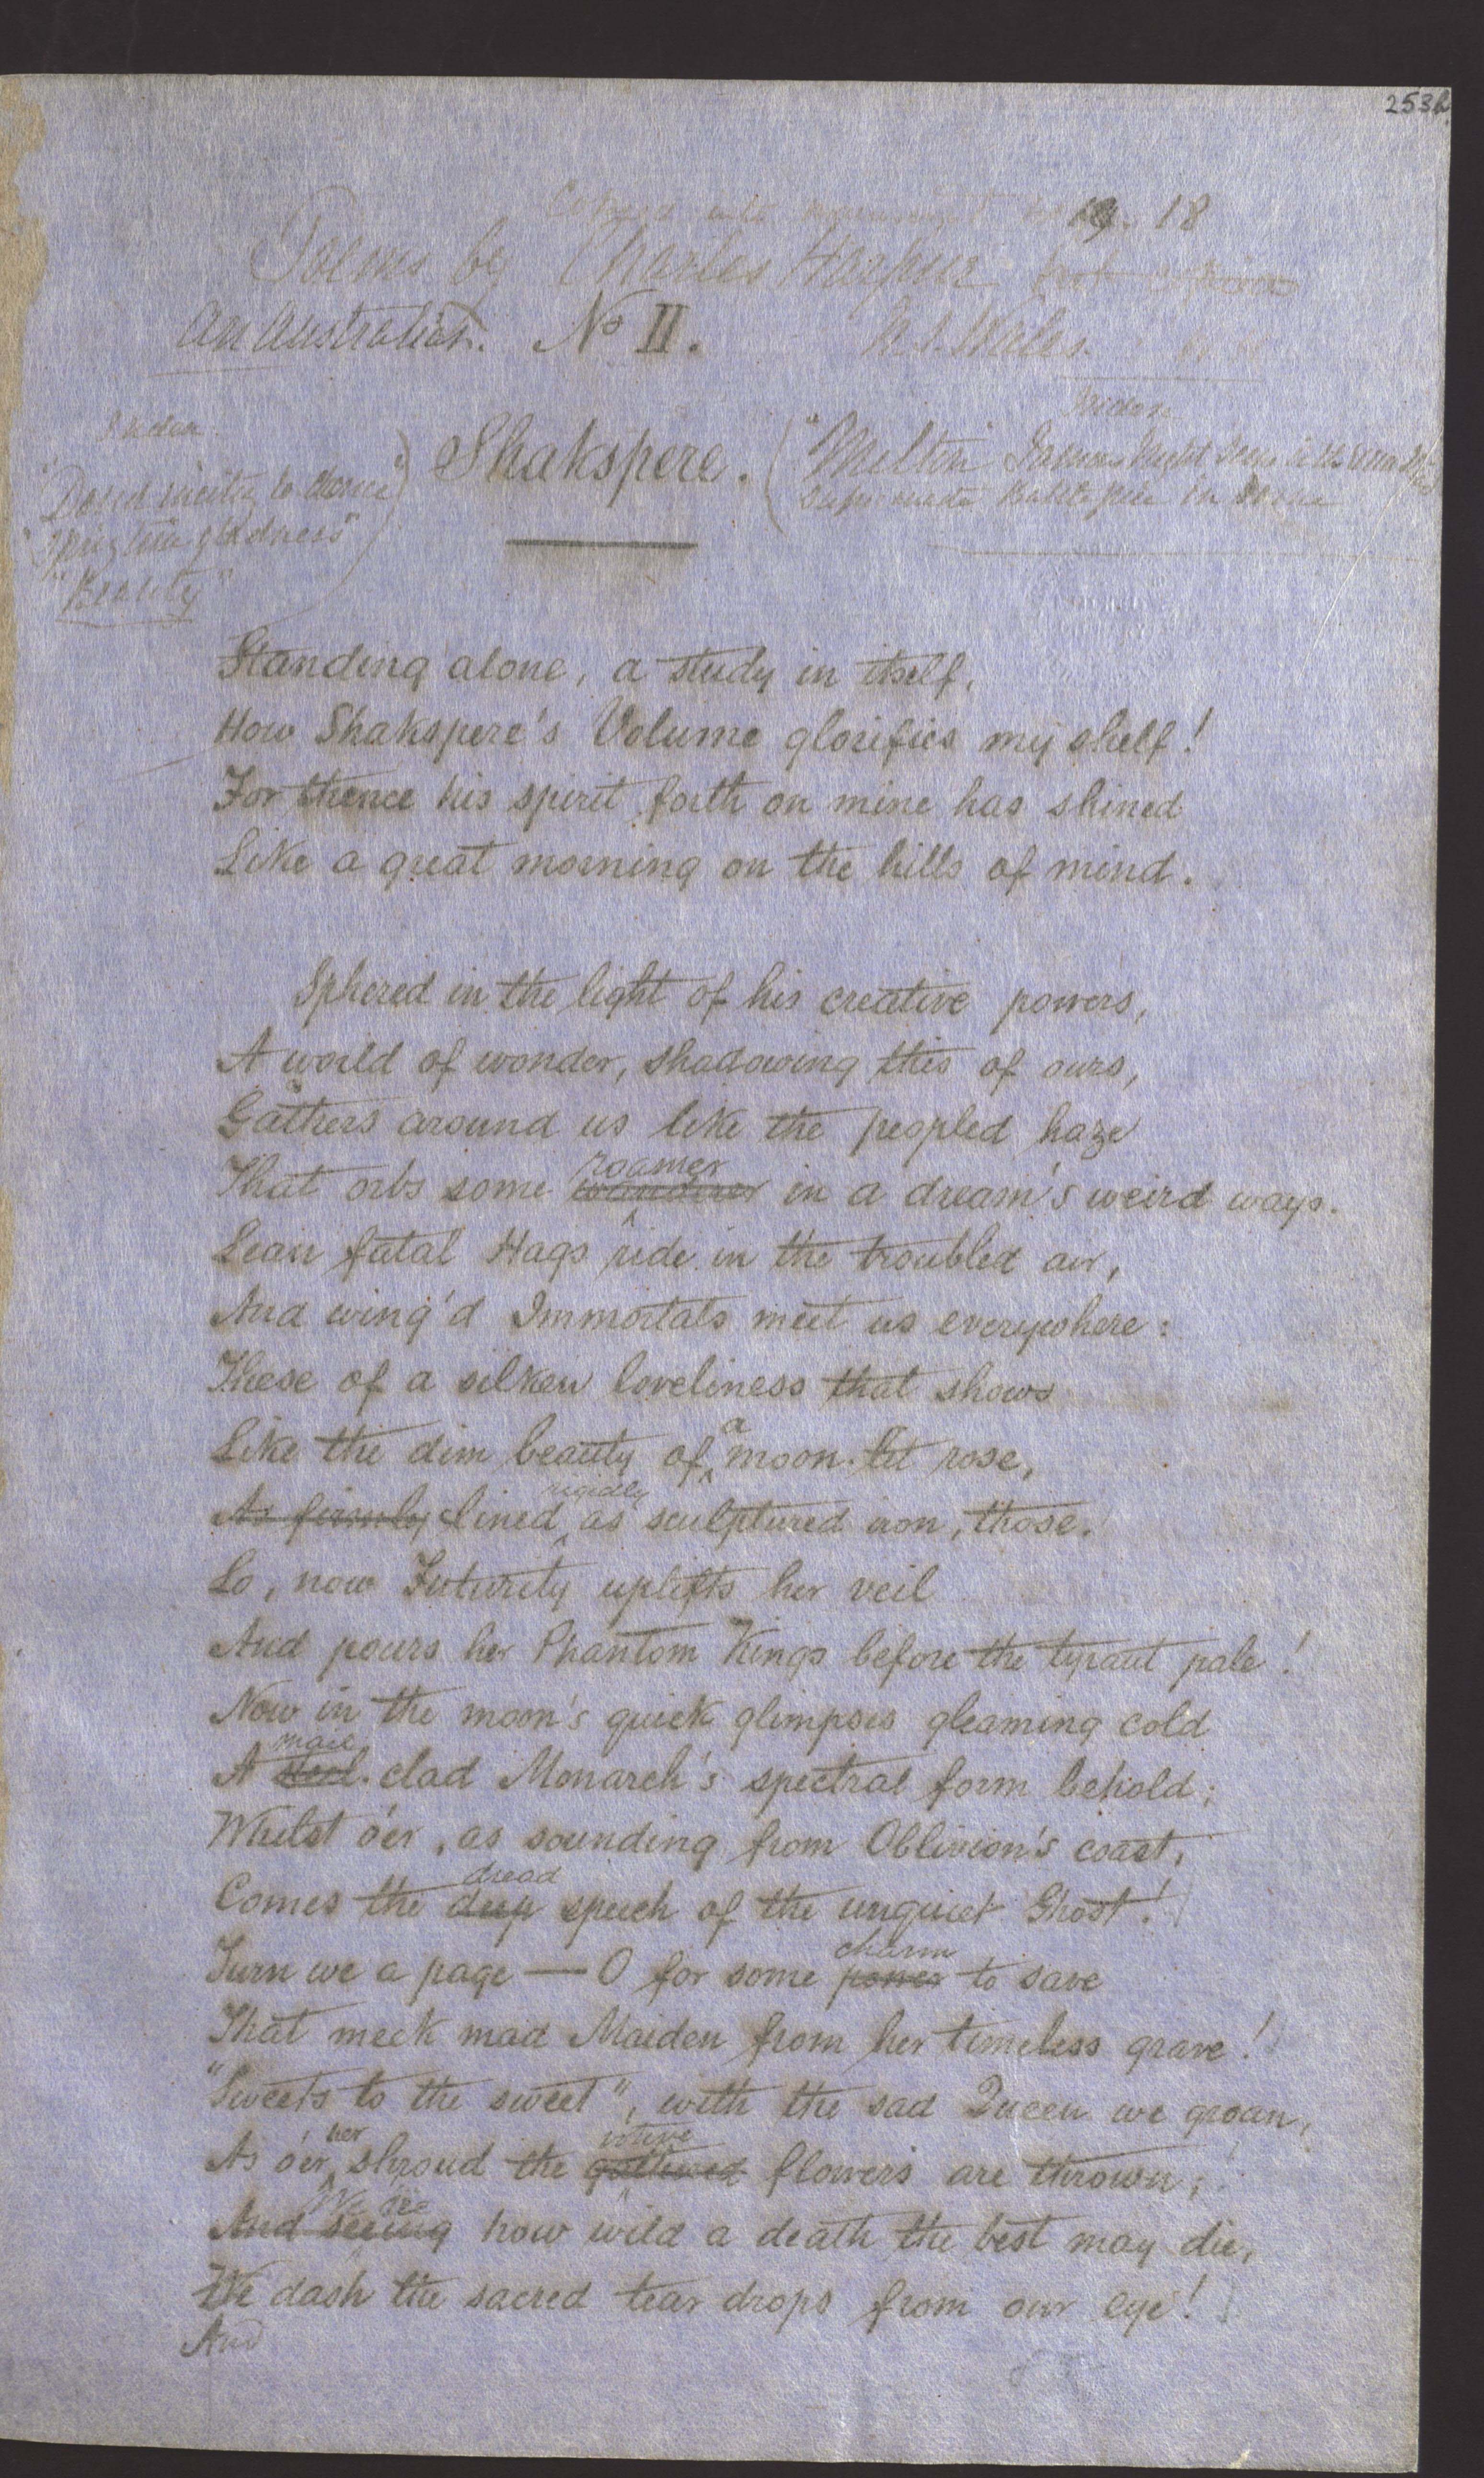 253
18
Poems by Charles Harpur
An Australian. No II. N. S. Wales.
Index
Shakspere.
"Milton"
gladness"
"Beauty"
Standing alone, a study in itself,
How Shakspere's Volume glorifies my shelf!
For thence his spirit forth on mine has shined
Like a great morning on the hills of mind.
Sphered in the light of his creative powers,
A world of wonder, shadowing this of ours,
Gathers around us like the peopled haze
roamer
That orbs some wanderer in a dream's weird ways.
Lean fatal Hags ride in the troubled air,
And wing'd Immortals meet us everywhere:
These of a silken loveliness that shows
Like the dim beauty of a moon-lit rose,
rigidly
As firmly lined as sculptured iron, those.
Lo, now Futurity uplifts her veil
And pours her Phantom Kings before the tyrant pale!
Now in the moon's quick glimpses gleaming cold
mail
A steel-clad Monarch's spectral form behold;
Whilst o'er, as sounding from Oblivion's coast,
dread
Comes the deep speech of the unquiet Ghost!
charm
Turn we a page — O for some power to save
That meek mad Maiden from her timeless grave!
"Sweets to the sweet", with the sad Queen we groan,
her
As o'er shroud the gathered flowers are thrown;
We see
And seeing how wild a death the best may die,
We dash the sacred tear drops from our eye!
And